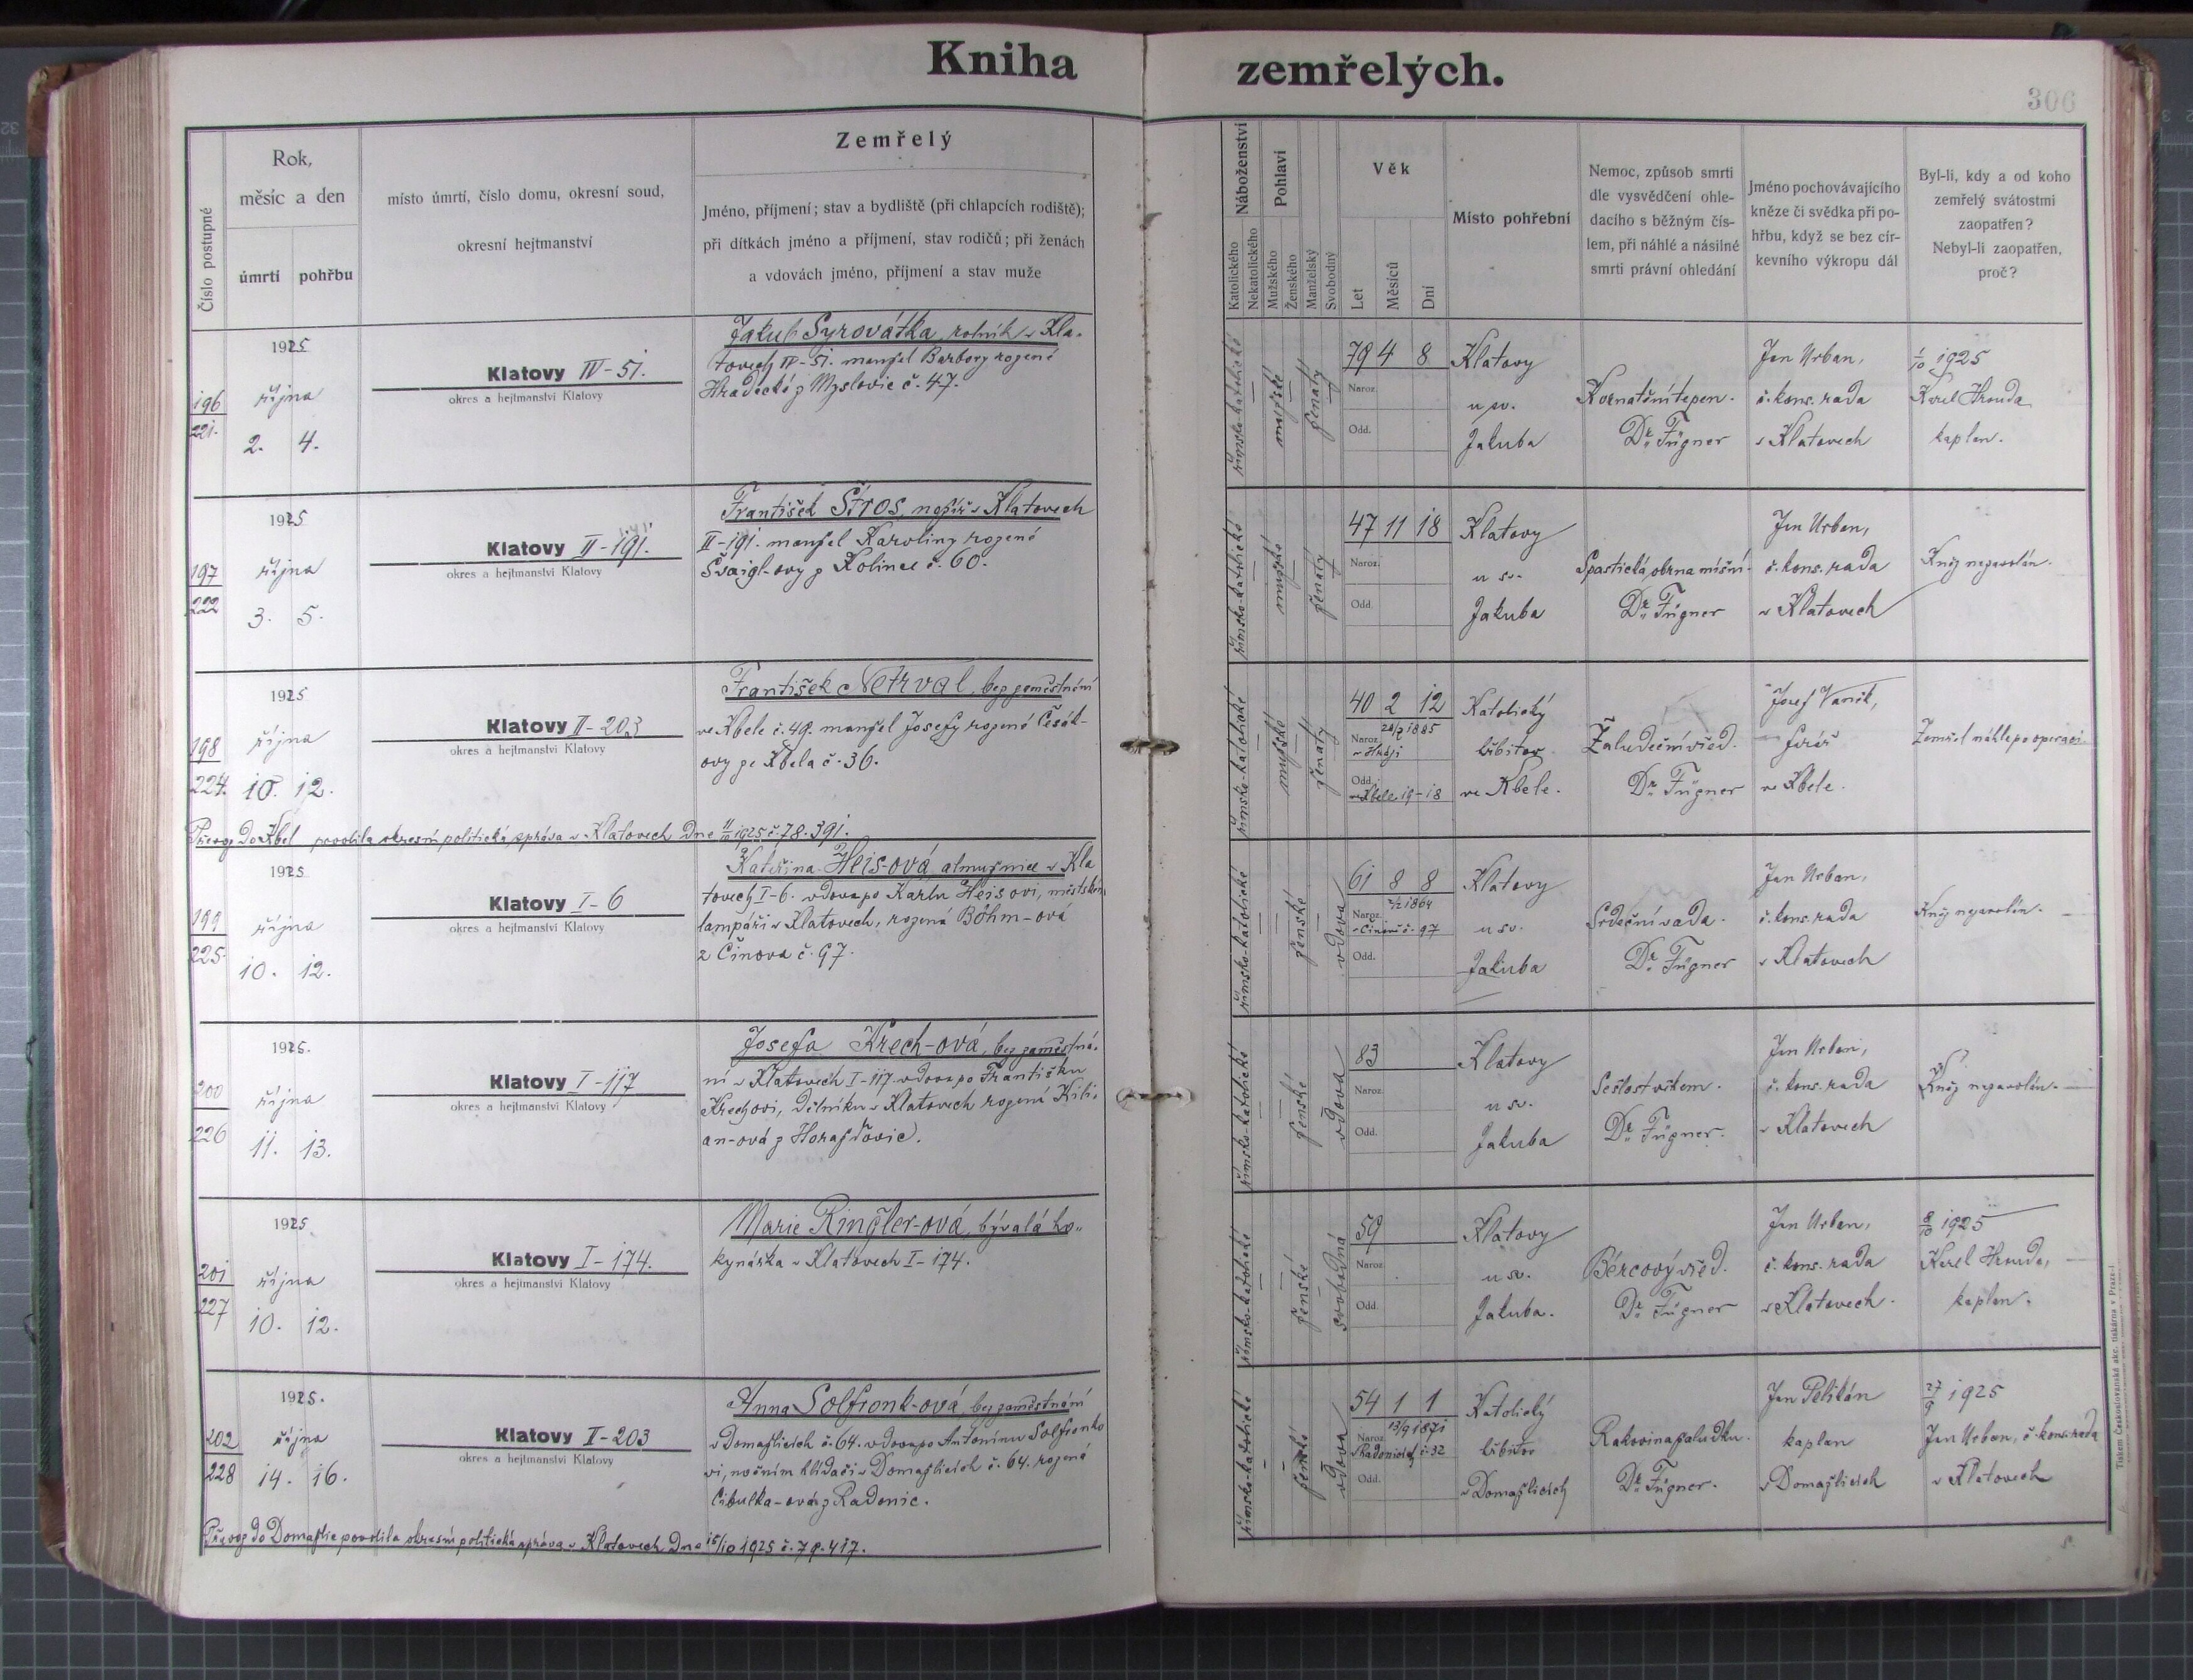 Kniha zemřelých.
306
Číslo postupné
Rok,
měsíc a den
úmrtí pohřbu
místo úmrtí, číslo domu, okresní soud,
okresní hejtmanství
Zemřelý
Jméno, příjmení; stav a bydliště (při chlapcích rodiště);
při dítkách jméno a příjmení, stav rodičů; při ženách
a vdovách jméno, příjmení a stav muže
Náboženství
Katolického
Nekatolického
Pohlaví
Mužského
Ženského
Manželský
Svobodný
Věk
Let
Měsíců
Dní
Místo pohřební
Nemoc, způsob smrti
dle vysvědčení ohle-
dacího s běžným čís-
lem, při náhlé a násilné
smrti právní ohledání
Jméno pochovávajícího
kněze či svědka při po-
hřbu, když se bez cír-
kevního výkropu dál
Byl-li, kdy a od koho
zemřelý svátostmi
zaopatřen?
Nebyl-li zaopatřen,
proč?
196
221.
1925
října
2. 4.
Klatovy IV-51.
okres a hejtmanství Klatovy
Jakub Syrovátka, rolník v Kla-
tovech IV-51. manžel Barbory rozené
Hradecké z Myslovic č. 47.
římsko-katolické
mužské
ženatý
79 4 8
Naroz.
Odd.
Klatovy
u sv.
Jakuba
Kornatění tepen.
Dr. Fügner
Jan Urban,
č. kons. rada
v Klatovech
1/10 1925
Karel Hrouda
kaplan.
197
222
1925
října
3. 5.
Klatovy II-191.
okres a hejtmanství Klatovy
František Štros, nožíř v Klatovech
II-191. manžel Karoliny rozené
Švaigl-ovy z Kolince č. 60.
římsko-katolické
mužské
ženatý
47 11 18
Naroz.
Odd.
Klatovy
u sv.
Jakuba
Spastická obrna míšní.
Dr. Fügner
Jan Urban,
č. kons. rada
v Klatovech
Kněz nepovolán.
198
224.
1925
října
10. 12.
Klatovy II-203
okres a hejtmanství Klatovy
František Netrval, bez zaměstnání
ve Kbele č. 49. manžel Josefy rozené Česák-
ovy ze Kbela č. 36.
Převoz do Kbel povolila okresní politická správa v Klatovech dne 11/10 1925 č. 78.391.
římsko-katolické
mužské
ženatý
40 2 12
Naroz.
Odd.
ve Kbele 19-18
Katolický
hřbitov
ve Kbele.
Žaludeční vřed.
Dr. Fügner
Josef Vaněk,
farář
ve Kbele.
Zemřel náhle po operaci
199
225.
1925
října
10. 12.
Klatovy I-6
okres a hejtmanství Klatovy
Kateřina Heis-ová, almužnice v Kla
tovech I-6. vdova po Karlu Heisovi, městském
lampáři v Klatovech, rozená Böhm-ová
z Činova č. 97.
římsko-katolické
ženské
vdova
61 8 8
2/2 1864
Naroz.
v Činově č. 97
Odd.
Klatovy
u sv.
Jakuba
Srdeční vada.
Dr. Fügner
Jan Urban,
č. kons. rada
v Klatovech
Kněz nepovolán.
200
226
1925.
října
11. 13.
Klatovy I-117
okres a hejtmanství Klatovy
Josefa Krech-ová, bez zaměstná-
ní v Klatovech I-117. vdova po Františku
Krechovi, dělníku v Klatovech rozená Kili-
an-ová z Horažďovic.
římsko-katolické
ženské
vdova
83
Naroz.
Odd.
Klatovy
u sv.
Jakuba
Sešlost věkem.
Dr. Fügner.
Jan Urban,
č. kons. rada
v Klatovech
Kněz nepovolán.
201
227
1925.
října
10. 12.
Klatovy I-174.
okres a hejtmanství Klatovy
Marie Ringler-ová, bývalá ho-
kynářka v Klatovech I-174.
římsko-katolické
ženské
svobodná
59
Naroz.
Odd.
Klatovy
u sv.
Jakuba.
Bércový vřed.
Dr. Fügner
Jan Urban,
č. kons. rada
v Klatovech.
8/10 1925
Karel Hrouda,
kaplan.
202
228
1925.
října
14. 16.
Klatovy II-203
okres a hejtmanství Klatovy
Anna Solfronk-ová, bez zaměstnání
v Domažlicích č. 64. vdova po Antonínu Solfronko
vi, nočním hlídači v Domažlicích č. 64. rozená
Cibulka-ová z Radonic.
Převoz do Domažlic povolila okresní politická správa v Klatovech dne 15/10 1925 č. 79.417.
římsko-katolické
ženské
vdova
54 1 1
13/9 1871
Naroz.
v Radonicích č. 32
Odd.
Katolický
hřbitov
v Domažlicích
Rakovina žaludku.
Dr. Fügner.
Jan Pelikán
kaplan
v Domažlicích
27/9 1925
Jan Urban, č. kons. rada
v Klatovech
Tiskem Českoslovanská akc. tiskárna v Praze-I.